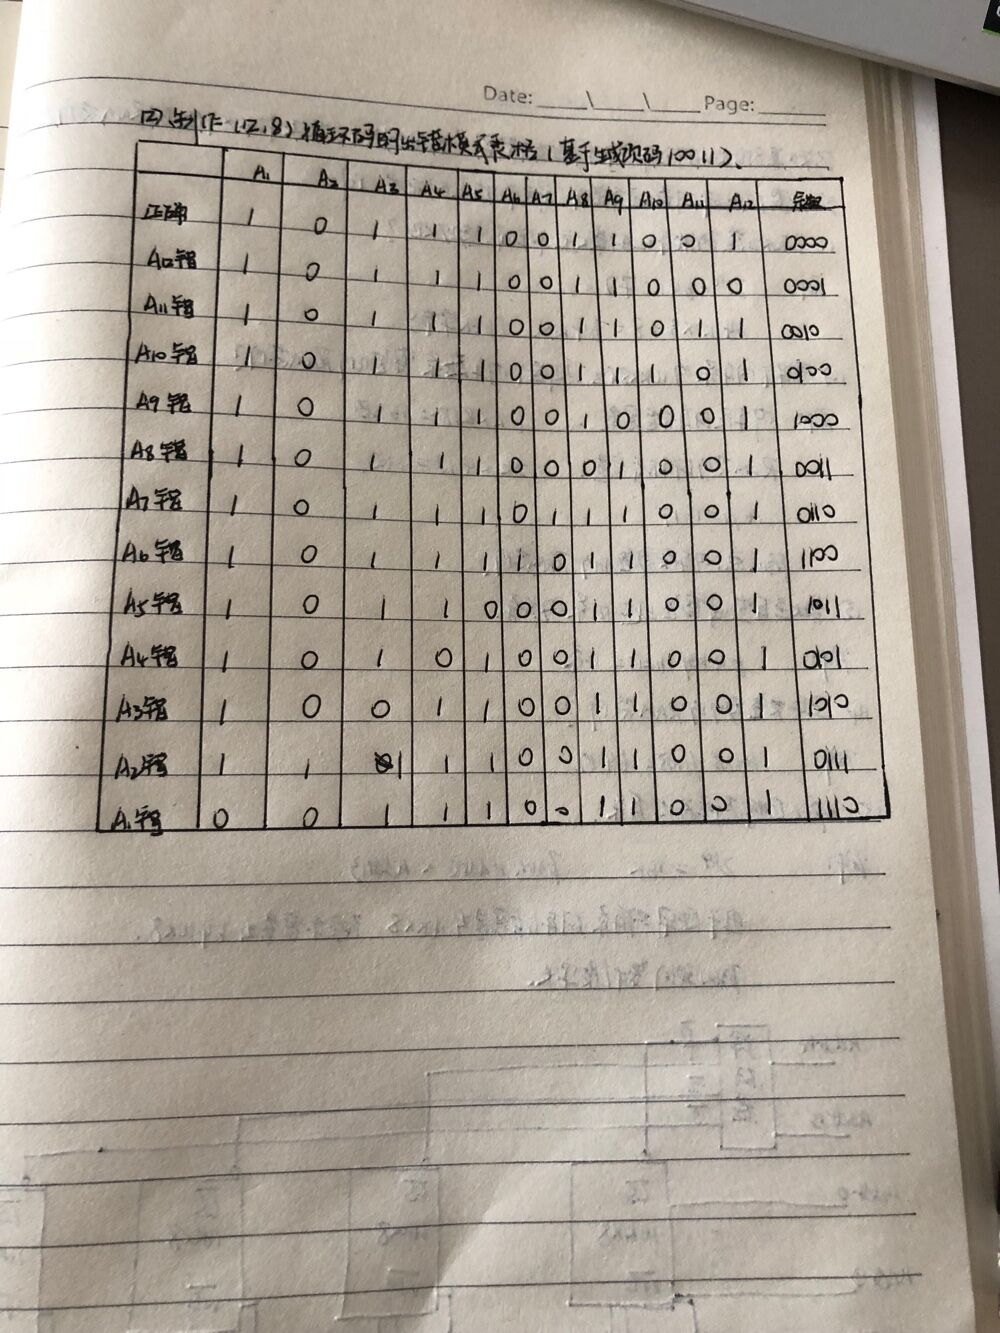 Date: \ \ Page:
四、制作(12,8)循环码的出错模式表格(基于生成项码10011)、
A1 A2 A3 A4 A5 A6 A7 A8 A9 A10 A11 A12 余数
正确 1 0 1 1 1 0 0 1 1 0 0 1 0000
A12错 1 0 1 1 1 0 0 1 1 0 0 0 0001
A11错 1 0 1 1 1 0 0 1 1 0 1 1 0010
A10错 1 0 1 1 1 0 0 1 1 1 0 1 0100
A9错 1 0 1 1 1 0 0 1 0 0 0 1 1000
A8错 1 0 1 1 1 0 0 0 1 0 0 1 0011
A7错 1 0 1 1 1 0 1 1 1 0 0 1 0110
A6错 1 0 1 1 1 1 0 1 1 0 0 1 1100
A5错 1 0 1 1 0 0 0 1 1 0 0 1 1011
A4错 1 0 1 0 1 0 0 1 1 0 0 1 0101
A3错 1 0 0 1 1 0 0 1 1 0 0 1 1010
A2错 1 1 1 1 1 0 0 1 1 0 0 1 0111
A1错 0 0 1 1 1 0 0 1 1 0 0 1 1110